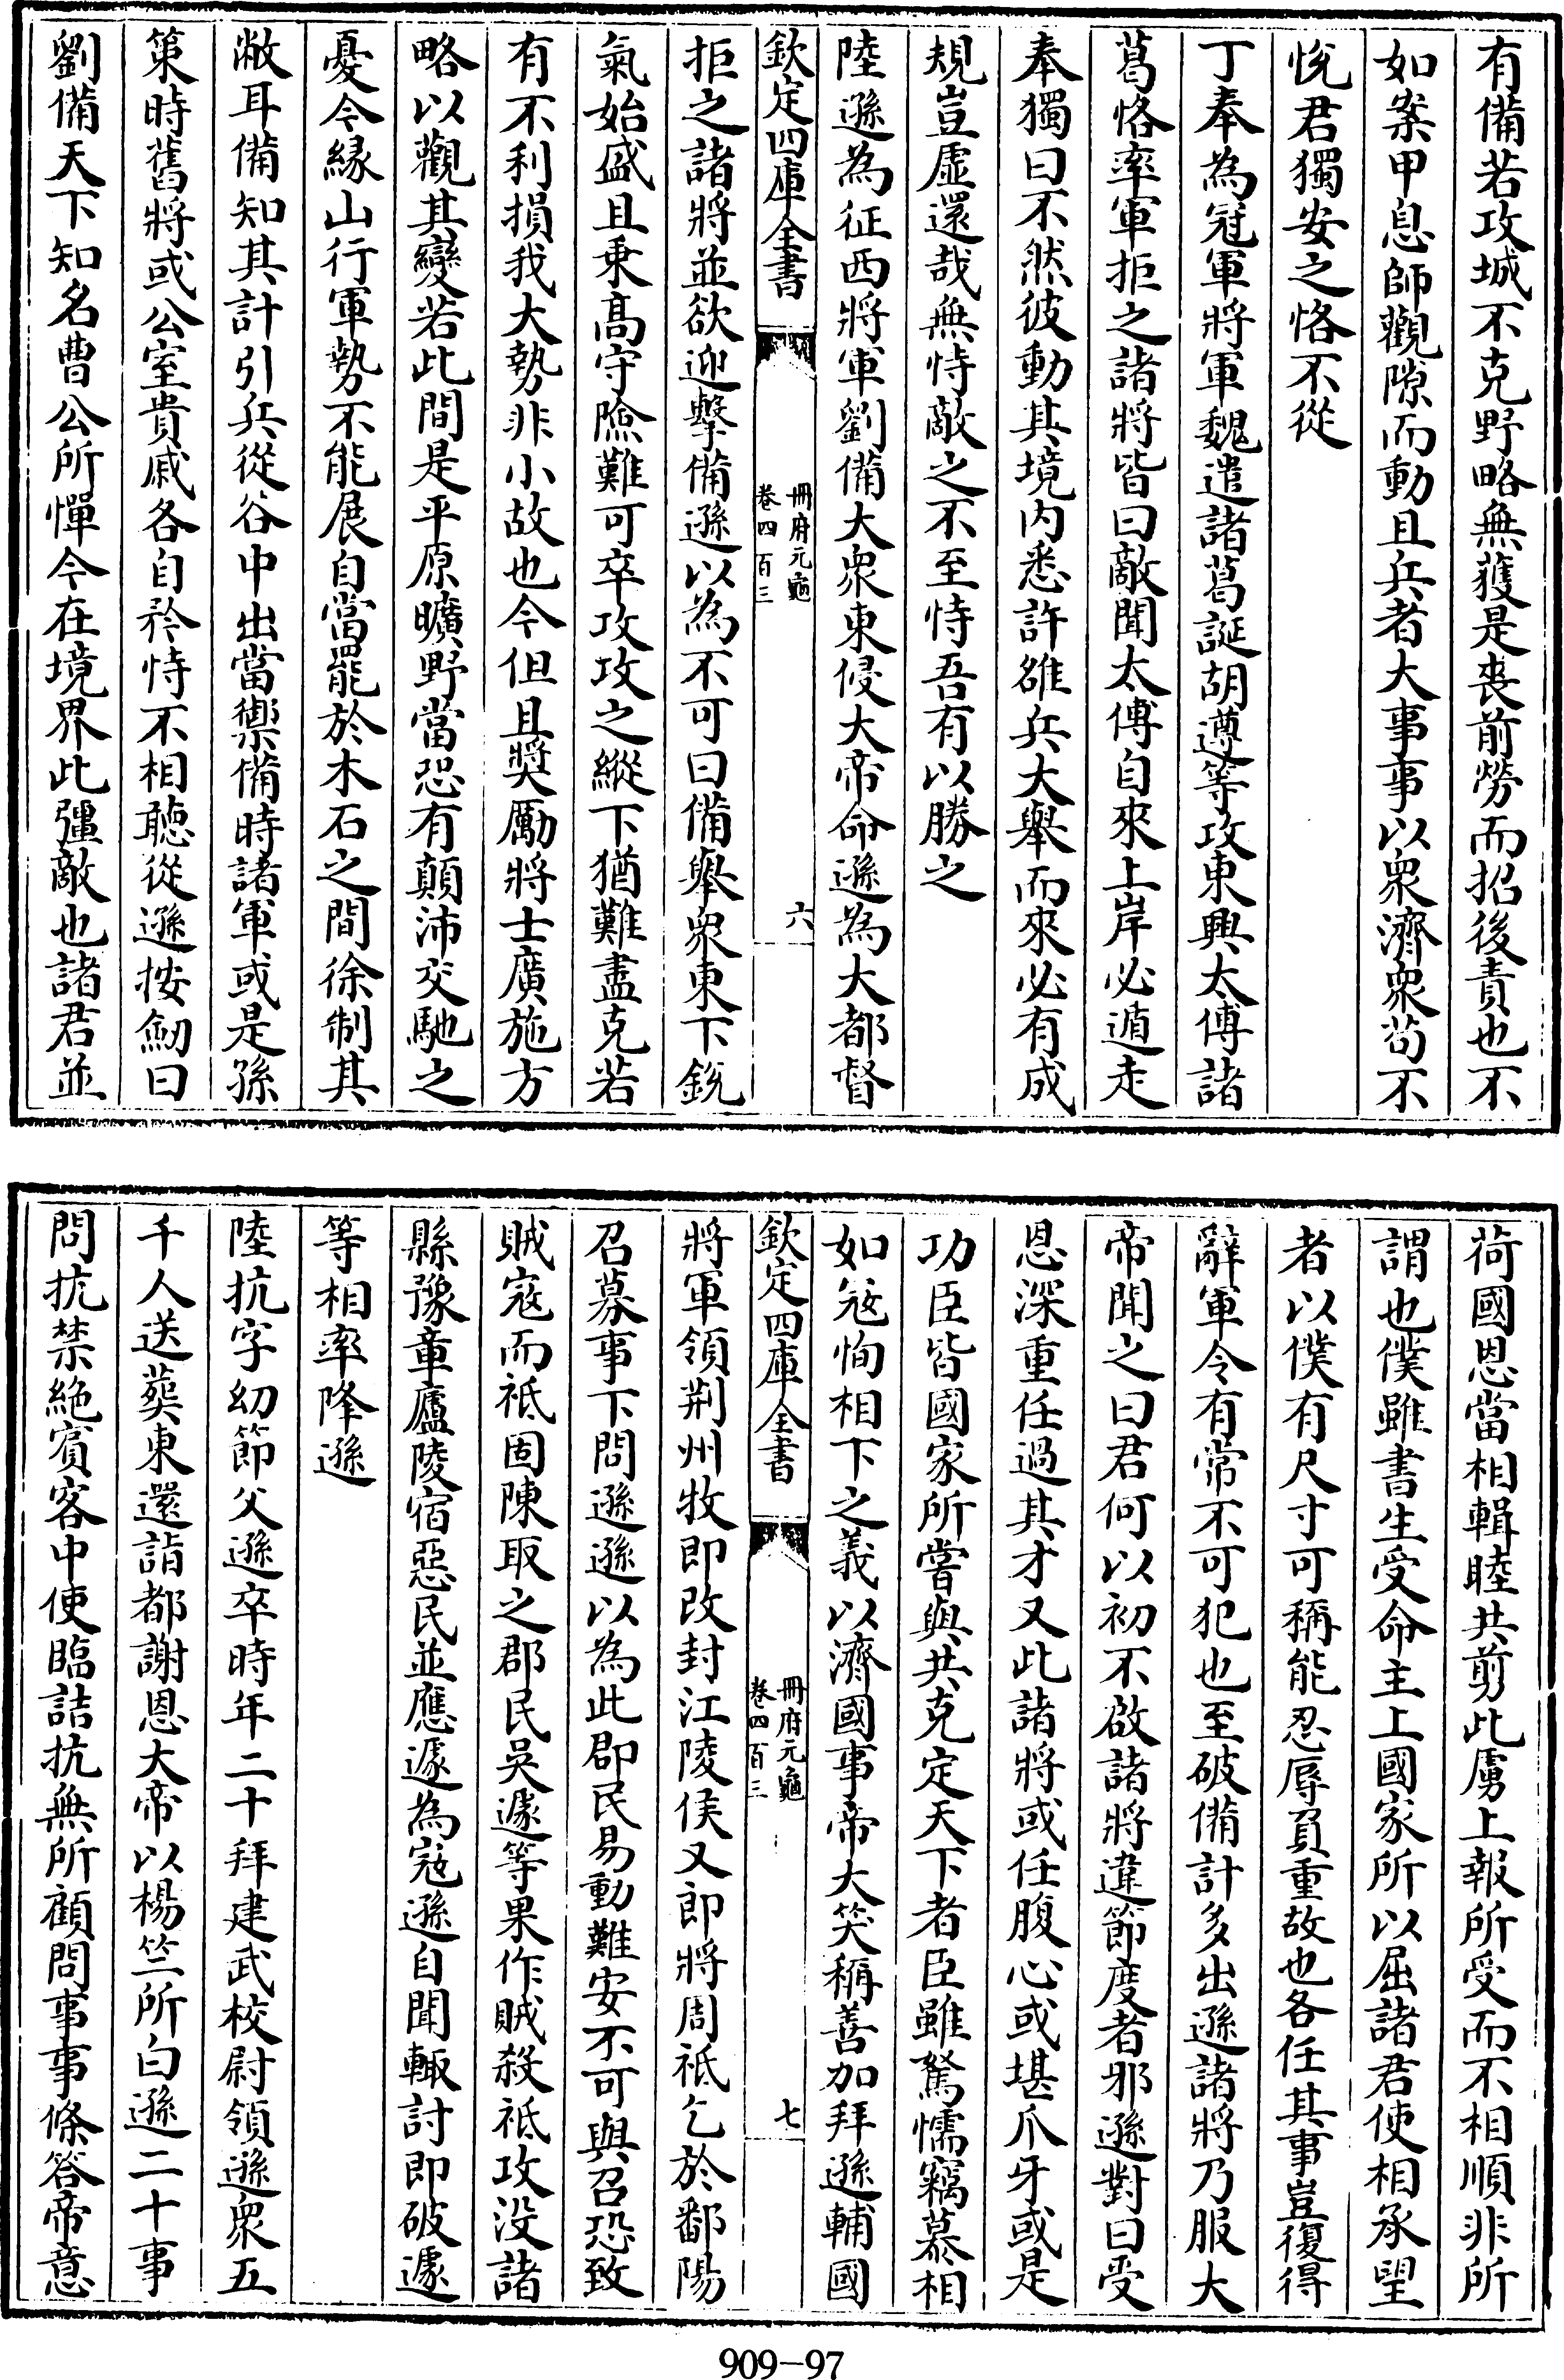 有備若攻城不克野略無獲是喪前勞而招後責也不
如案甲息師觀隙而動且兵者大事事以衆濟衆苟不
悅君獨安之恪不從
丁奉為冠軍將軍魏遣諸葛誕胡遵等攻東興太傅諸
葛恪率軍拒之諸將皆曰敵聞太傅自來上岸必遁走
奉獨曰不然彼動其境内悉許雒兵大舉而來必有成
規豈虛還哉無恃敵之不至恃吾有以勝之
陸遜為征西將軍劉備大衆東侵大帝命遜為大都督
欽定四庫全書
冊府元龜
卷四百三
六
拒之諸將並欲迎擊備遜以為不可曰備舉衆東下銳
氣始盛且乗髙守險難可卒攻攻之縱下猶難盡克若
有不利損我大勢非小故也今但且奬厲將士廣施方
略以觀其變若此間是平原曠野當恐有顛沛交馳之
憂今緣山行軍勢不能展自當罷於木石之間徐制其
敝耳備知其計引兵從谷中出當禦備時諸軍或是孫
策時舊將或公室貴戚各自矜恃不相聽從遜按劒曰
劉備天下知名曹公所憚今在境界此彊敵也諸君並
荷國恩當相輯睦共剪此虜上報所受而不相順非所
謂也僕雖書生受命主上國家所以屈諸君使相承望
者以僕有尺寸可稱能忍辱負重故也各任其事豈復得
辭軍令有常不可犯也至破備計多出遜諸將乃服大
帝聞之曰君何以初不啟諸將違節度者邪遜對曰受
恩深重任過其才又此諸將或任腹心或堪爪牙或是
功臣皆國家所嘗與共克定天下者臣雖駑懦竊慕相
如宼恂相下之義以濟國事帝大笑稱善加拜遜輔國
欽定四庫全書
冊府元龜
卷四百三
七
將軍領荆州牧即改封江陵侯又即將周祗乞於鄱陽
召募事下問遜遜以為此郡民易動難安不可與召恐致
賊寇而祗固陳取之郡民吳遽等果作賊殺祗攻没諸
縣豫章廬陵宿惡民並應遽為寇遜自聞輙討即破遽
等相率降遜
陸抗字幼節父遜卒時年二十拜建武校尉領遜衆五
千人送葬東還詣都謝恩大帝以楊竺所白遜二十事
問抗禁絶賓客中使臨詰抗無所顧問事事條答帝意
909-97